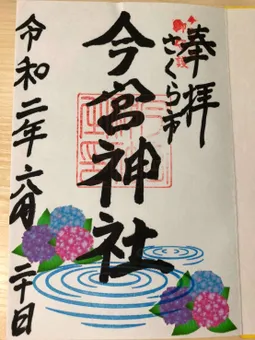 奉拝
さくら市
今宮神社
令和二年六月二十日